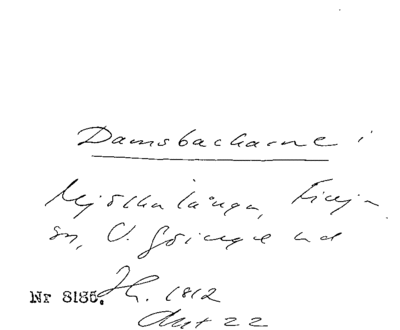 Damsbackarne i
Mjölkalånga, Finja
sn, V. Göinge hd
Nr 8135. Jh. 1812
Akt 22